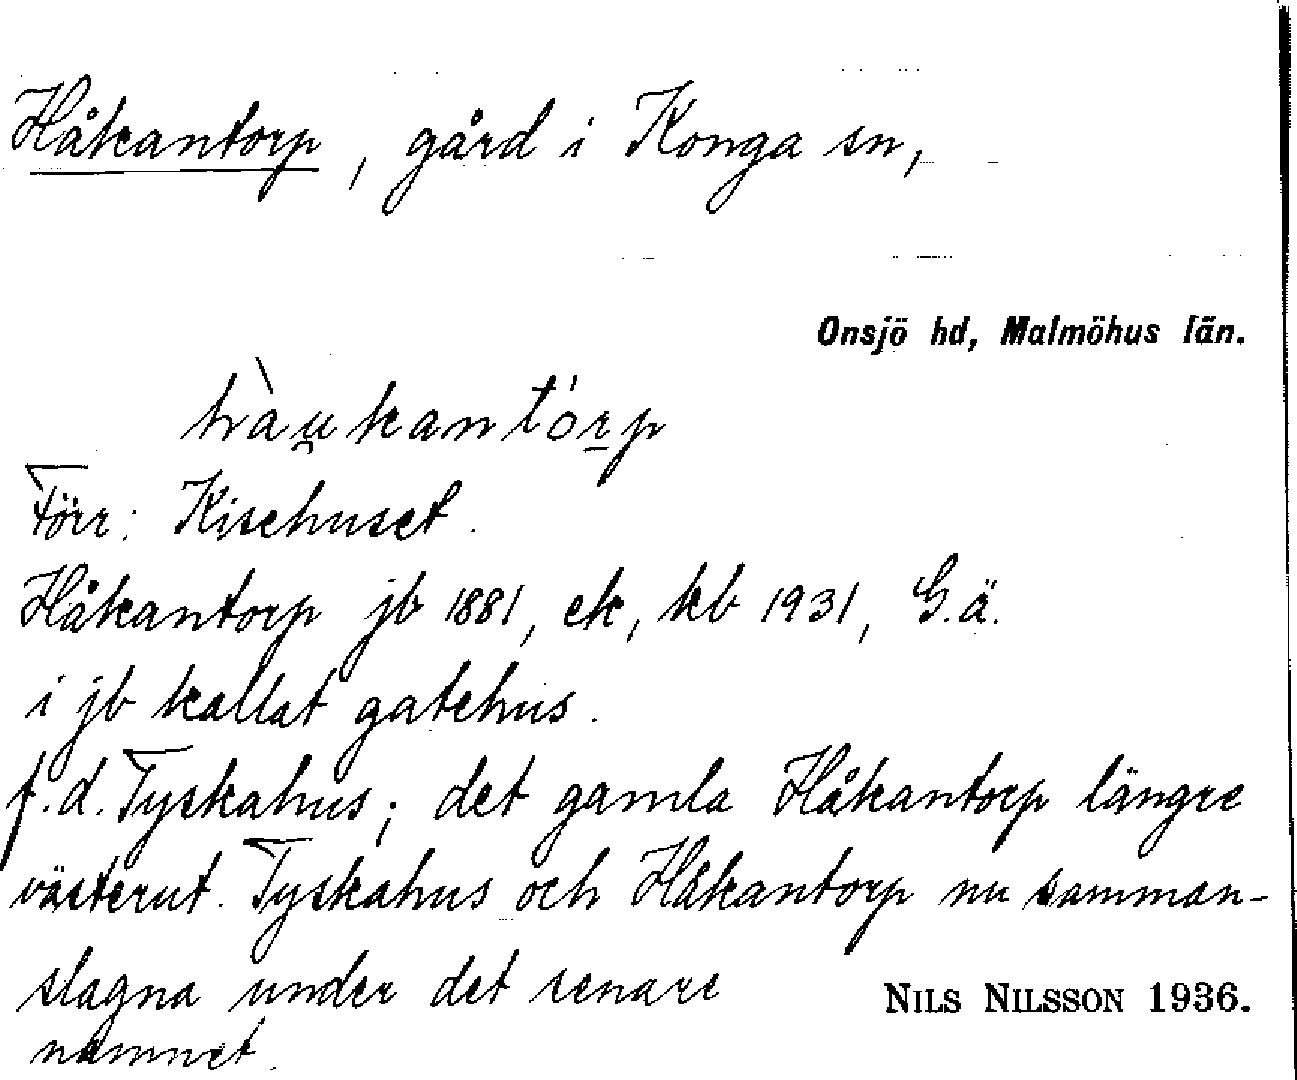 Håkantorp, gård i Konga sn,
Onsjö hd, Malmöhus län.
hàu̯kantórp
Förr: Kisehuset.
Håkantorp jb 1881, ek, kb 1931, G.ä.
i jb kallat gatehus.
f.d. Tyskahus; det gamla Håkantorp längre
västerut. Tyskahus och Håkantorp nu samman-
slagna under det senare
NILS NILSSON 1936.
namnet.